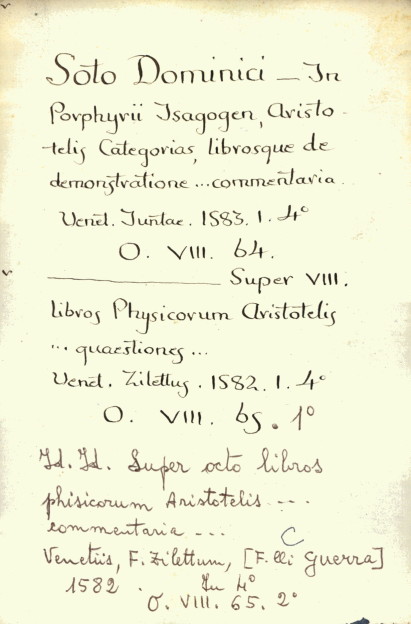 Soto Dominici — In
Porphyrii Isagogen, Aristo-
-telis Categorias, librosque de
demonstratione ... commentaria.
Venet. Iuntae. 1583. 1. 4°
O. VIII. 64.
——— Super VIII.
libros Physicorum Aristotelis
... quaestiones ...
Venet. Zilettus. 1582. 1. 4°
O. VIII. 65. 1°
Id. Id. Super octo libros
phisicorum Aristotelis ...
commentaria ...
C
Venetiis, F. Zilettum, [F.lli Guerra]
1582. In 4°
O. VIII. 65. 2°